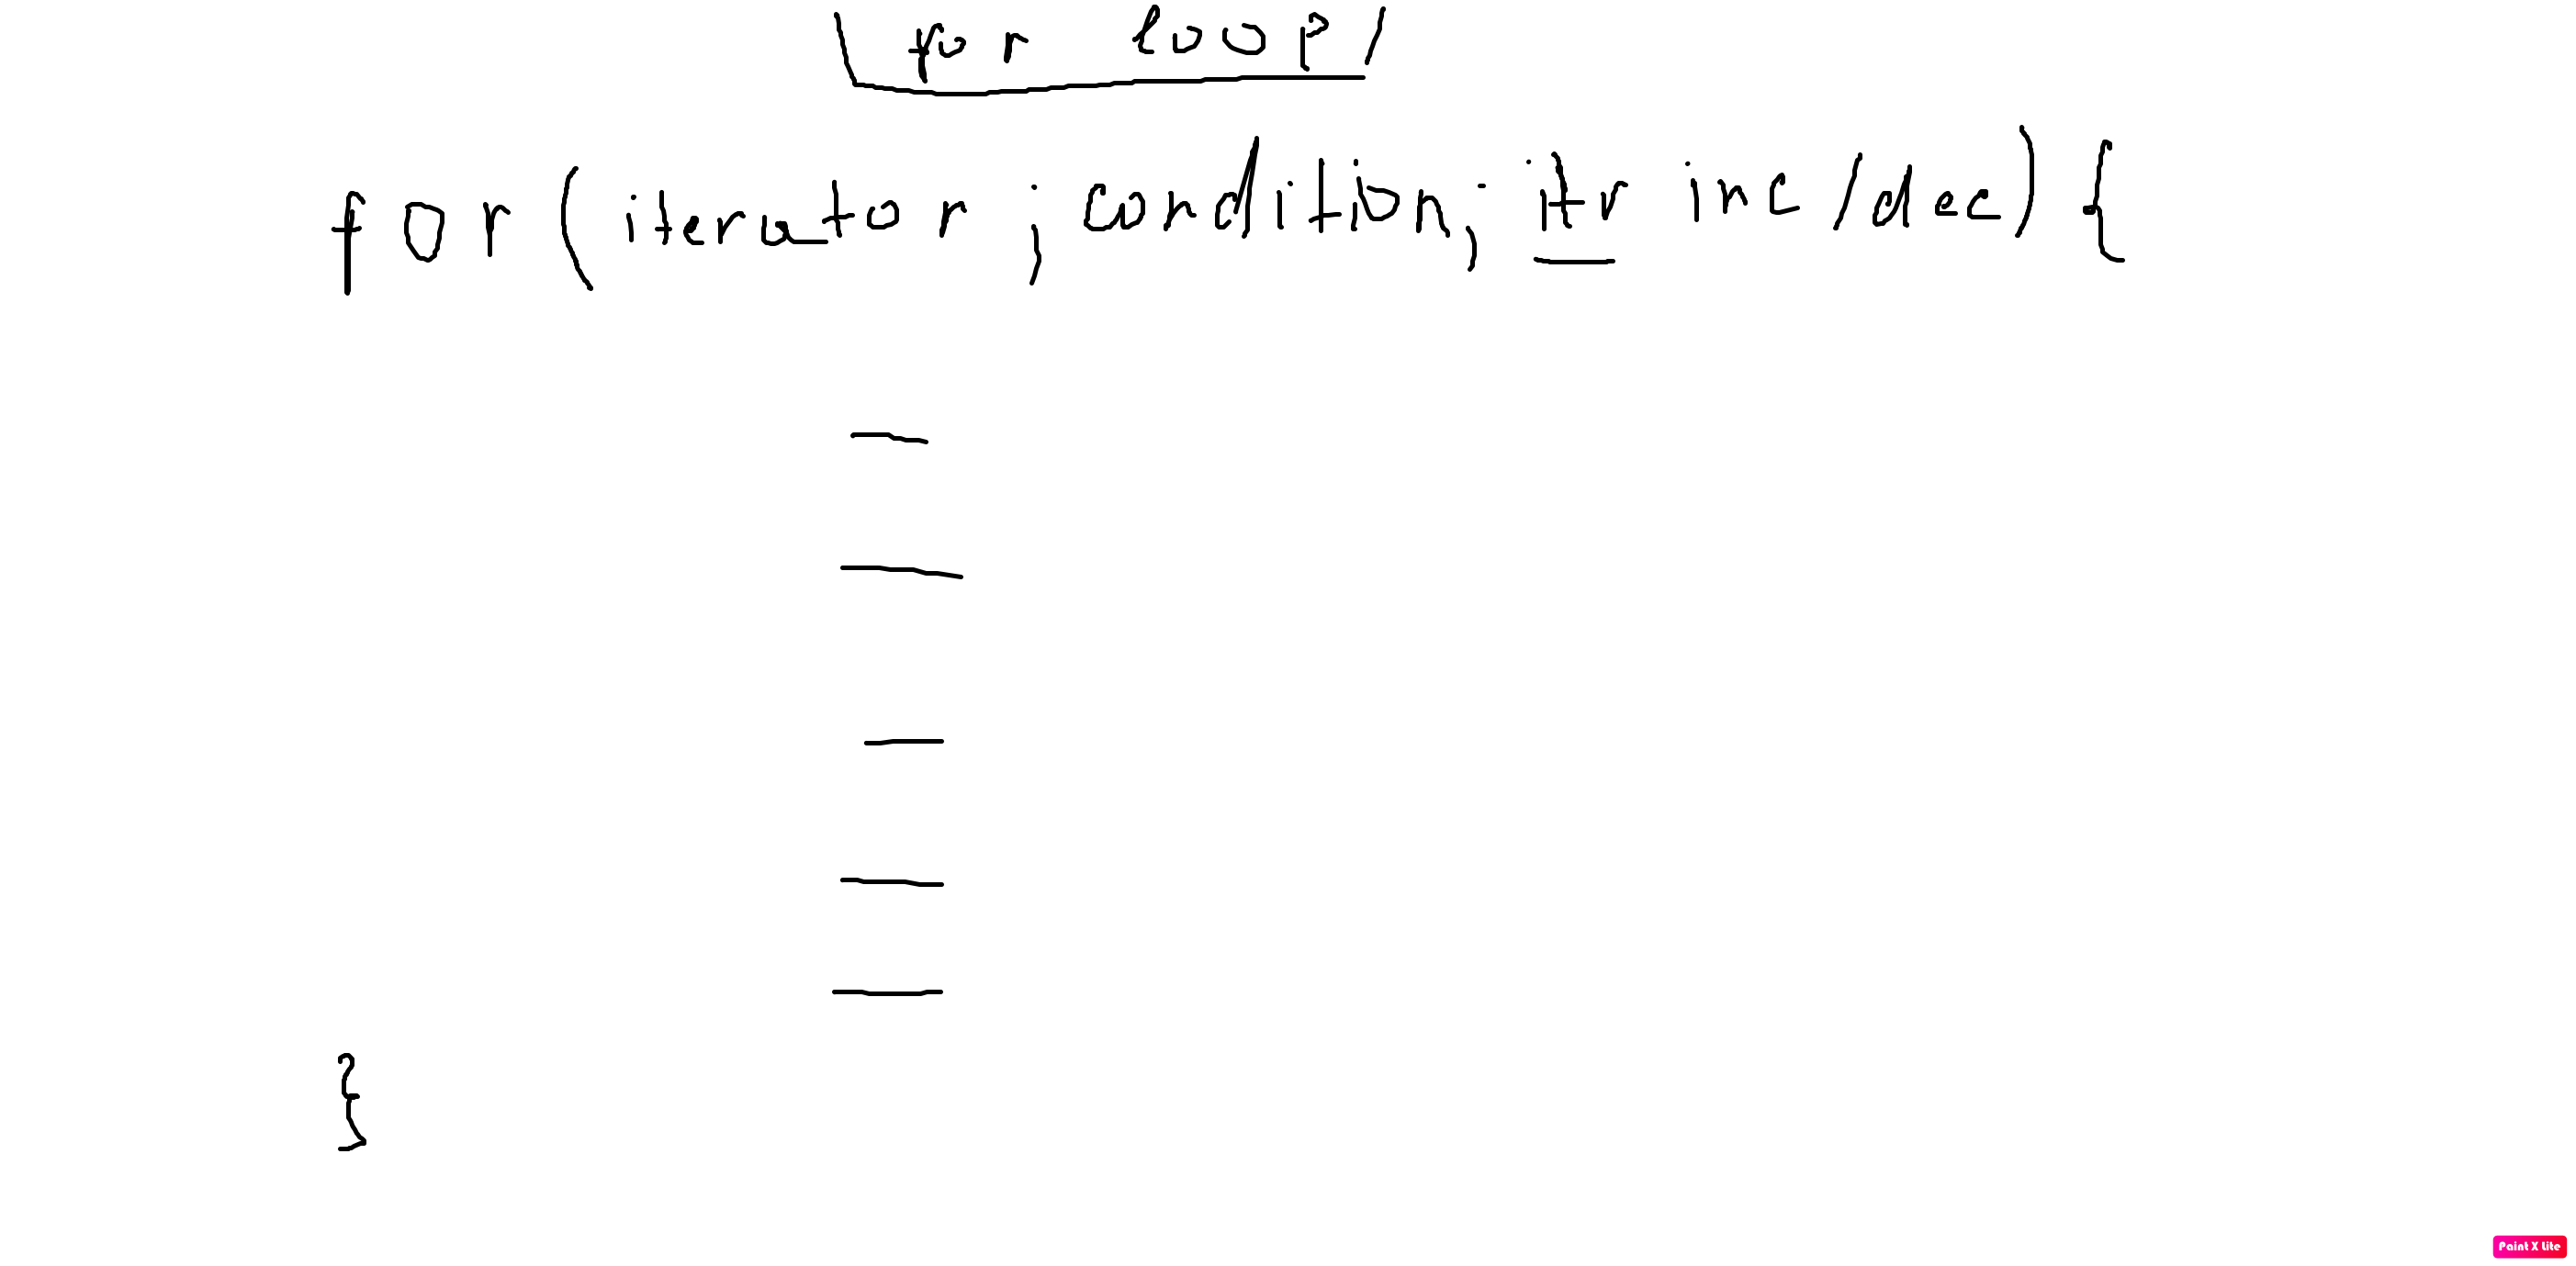 for loop
for (iterator ; condition; itr inc/dec) {
}
Paint X Lite